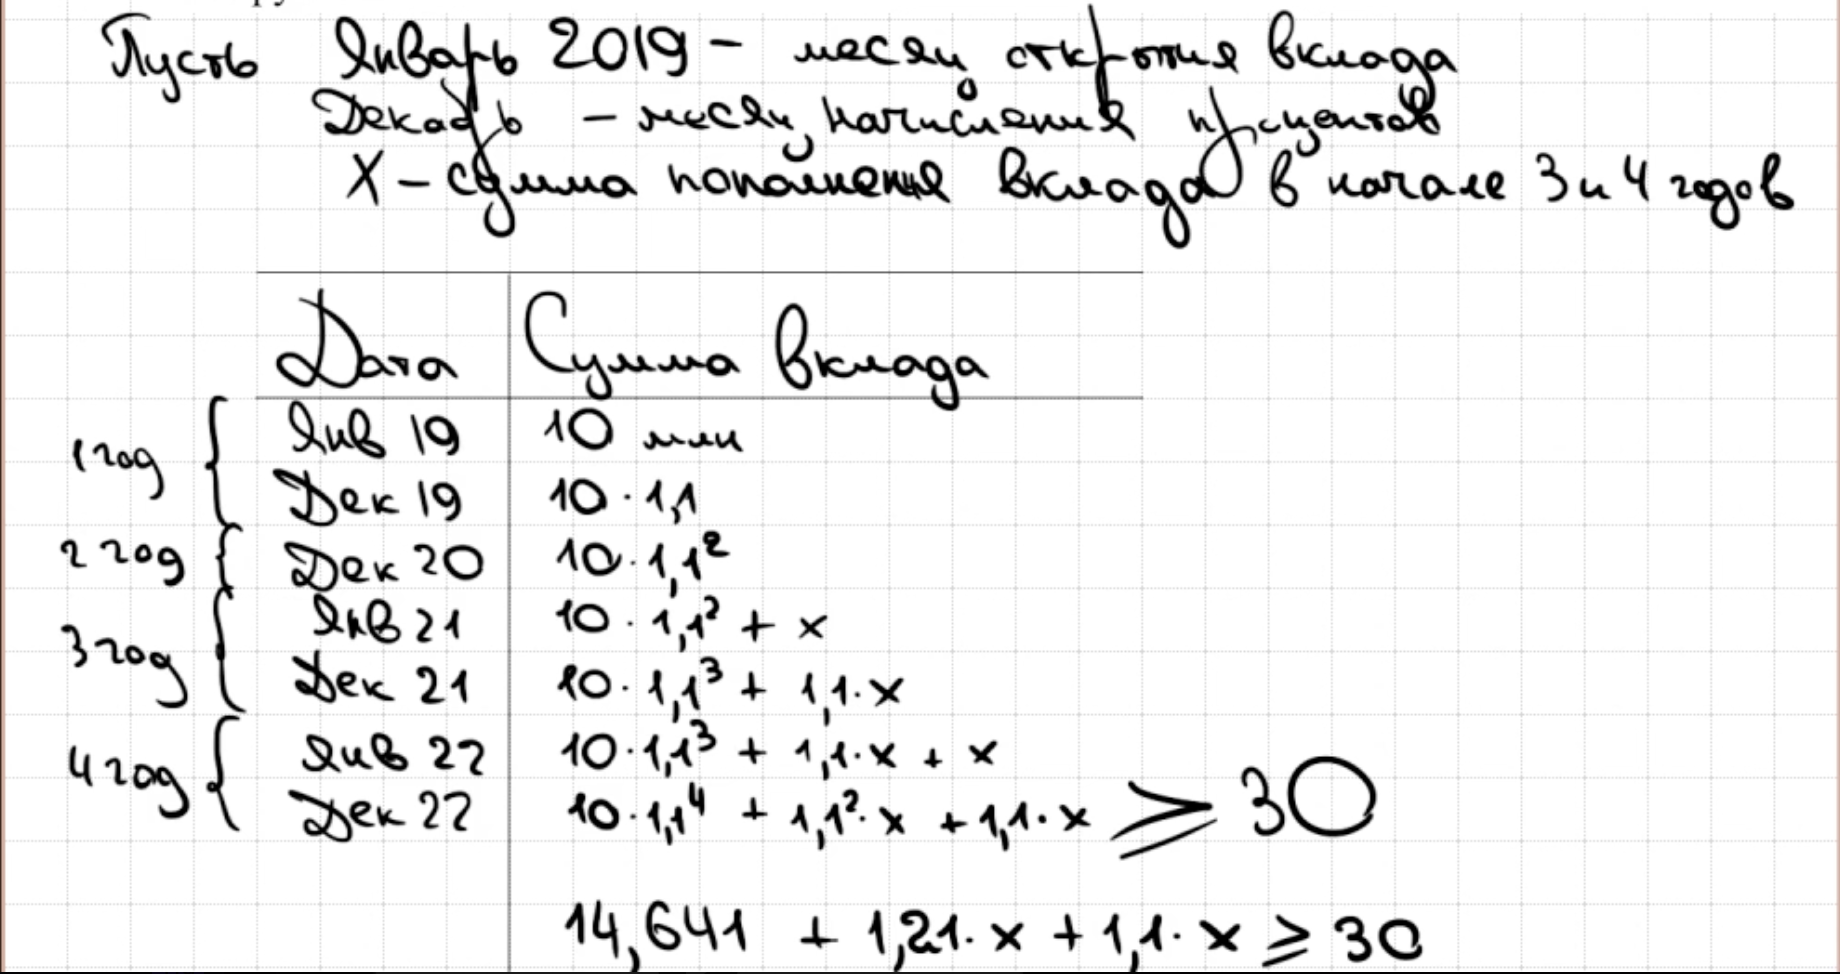 Пусть Январь 2019 - месяц открытия вклада
Декабрь - месяц начисления процентов
X - сумма пополнения вклада в начале 3 и 4 годов
Дата Сумма вклада
1 год Янв 19 10 млн
Дек 19 10 · 1,1
2 год Дек 20 10 · 1,1²
3 год Янв 21 10 · 1,1² + x
Дек 21 10 · 1,1³ + 1,1 · x
4 год Янв 22 10 · 1,1³ + 1,1 · x + x
Дек 22 10 · 1,1⁴ + 1,1² · x + 1,1 · x ≥ 30
14,641 + 1,21 · x + 1,1 · x ≥ 30